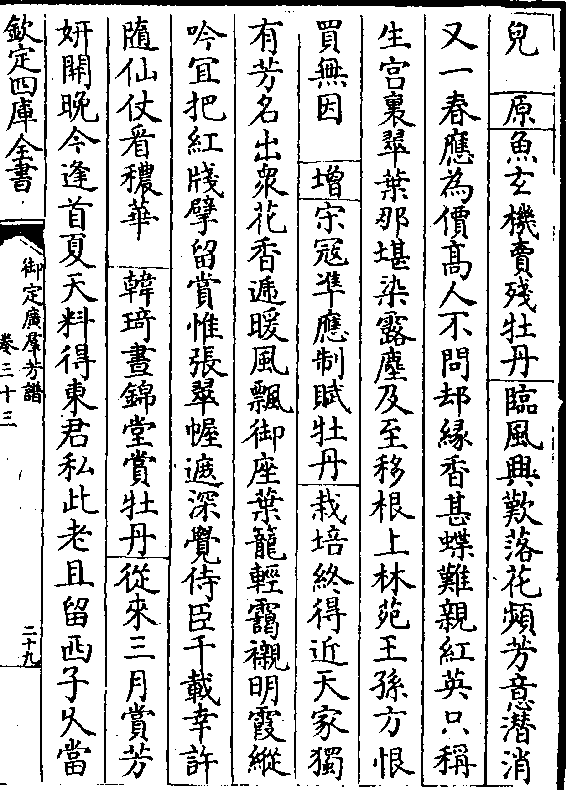 兒　原魚玄機賣殘牡丹臨風興歎落花頻芳意潛消
又一春應為價髙人不問却緣香甚蝶難親紅英只稱
生宫裏翠葉那堪染露塵及至移根上林苑王孫方恨
買無因　增宋冦準應制賦牡丹栽培終得近天家獨
有芳名出衆花香遞暖風飄御座葉籠輕靄襯明霞縱
吟宜把紅牋擘留賞惟張翠幄遮深覺侍臣千載幸許
隨仙仗看穠華　韓琦晝錦堂賞牡丹從來三月賞芳
妍開晚今逢首夏天料得東君私此老且留西子久當
欽定四庫全書
御定廣羣芳譜
卷三十三
二十九